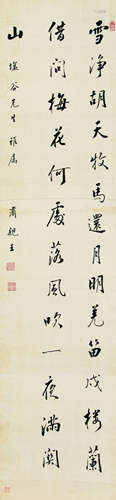 雪淨胡天牧馬還月明羌笛戍樓蘭
借問梅花何處落風吹一夜滿關
山
塩谷先生雅属
肅親王